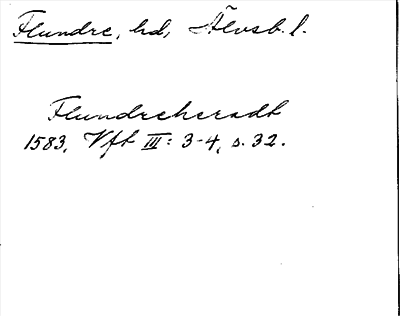 Flundre, hd, Älvsb. l.
Flundreheradt
1583, Vft III: 3-4, s. 32.